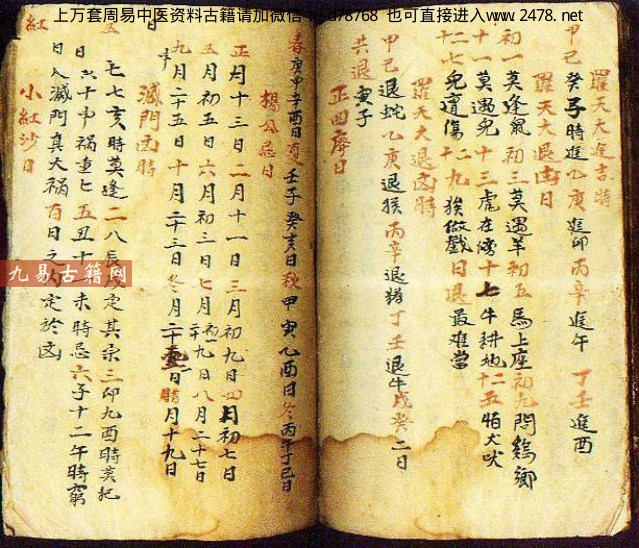 上万套周易中医资料古籍请加微信 d78768 也可直接进入www.2478.net
羅天大進吉時
甲己癸子時進乙庚進卯丙辛進午丁壬進酉
羅天大退凶日
初一莫逢鼠初三莫遇羊初五馬上座初九問鷄鄉
十一莫遇兔十三虎在傍十七牛耕地二十五怕犬吠
二十七兔遭傷二十九猴做戲日退最难當
羅天大退凶時
甲己退蛇乙庚退猴丙辛退猪丁壬退牛戊癸二日
共退寅子
正四廢日
春庚申辛酉日夏壬子癸亥日秋甲寅乙酉日冬丙午丁巳日
楊公忌日
正月十三日二月十一日三月初九日四月初七日
五月初五日六月初三日七月初一二十九日八月二十七日
九月二十五日十月二十三日冬月二十壹日腊月十九日
滅門凶時
七亥時莫逢二八辰戌定其宗三卯九酉時莫犯
五丑十一未時忌六子十二午時窮
日入滅門真大祸百日之内定於凶
小紅沙日
九易古籍网